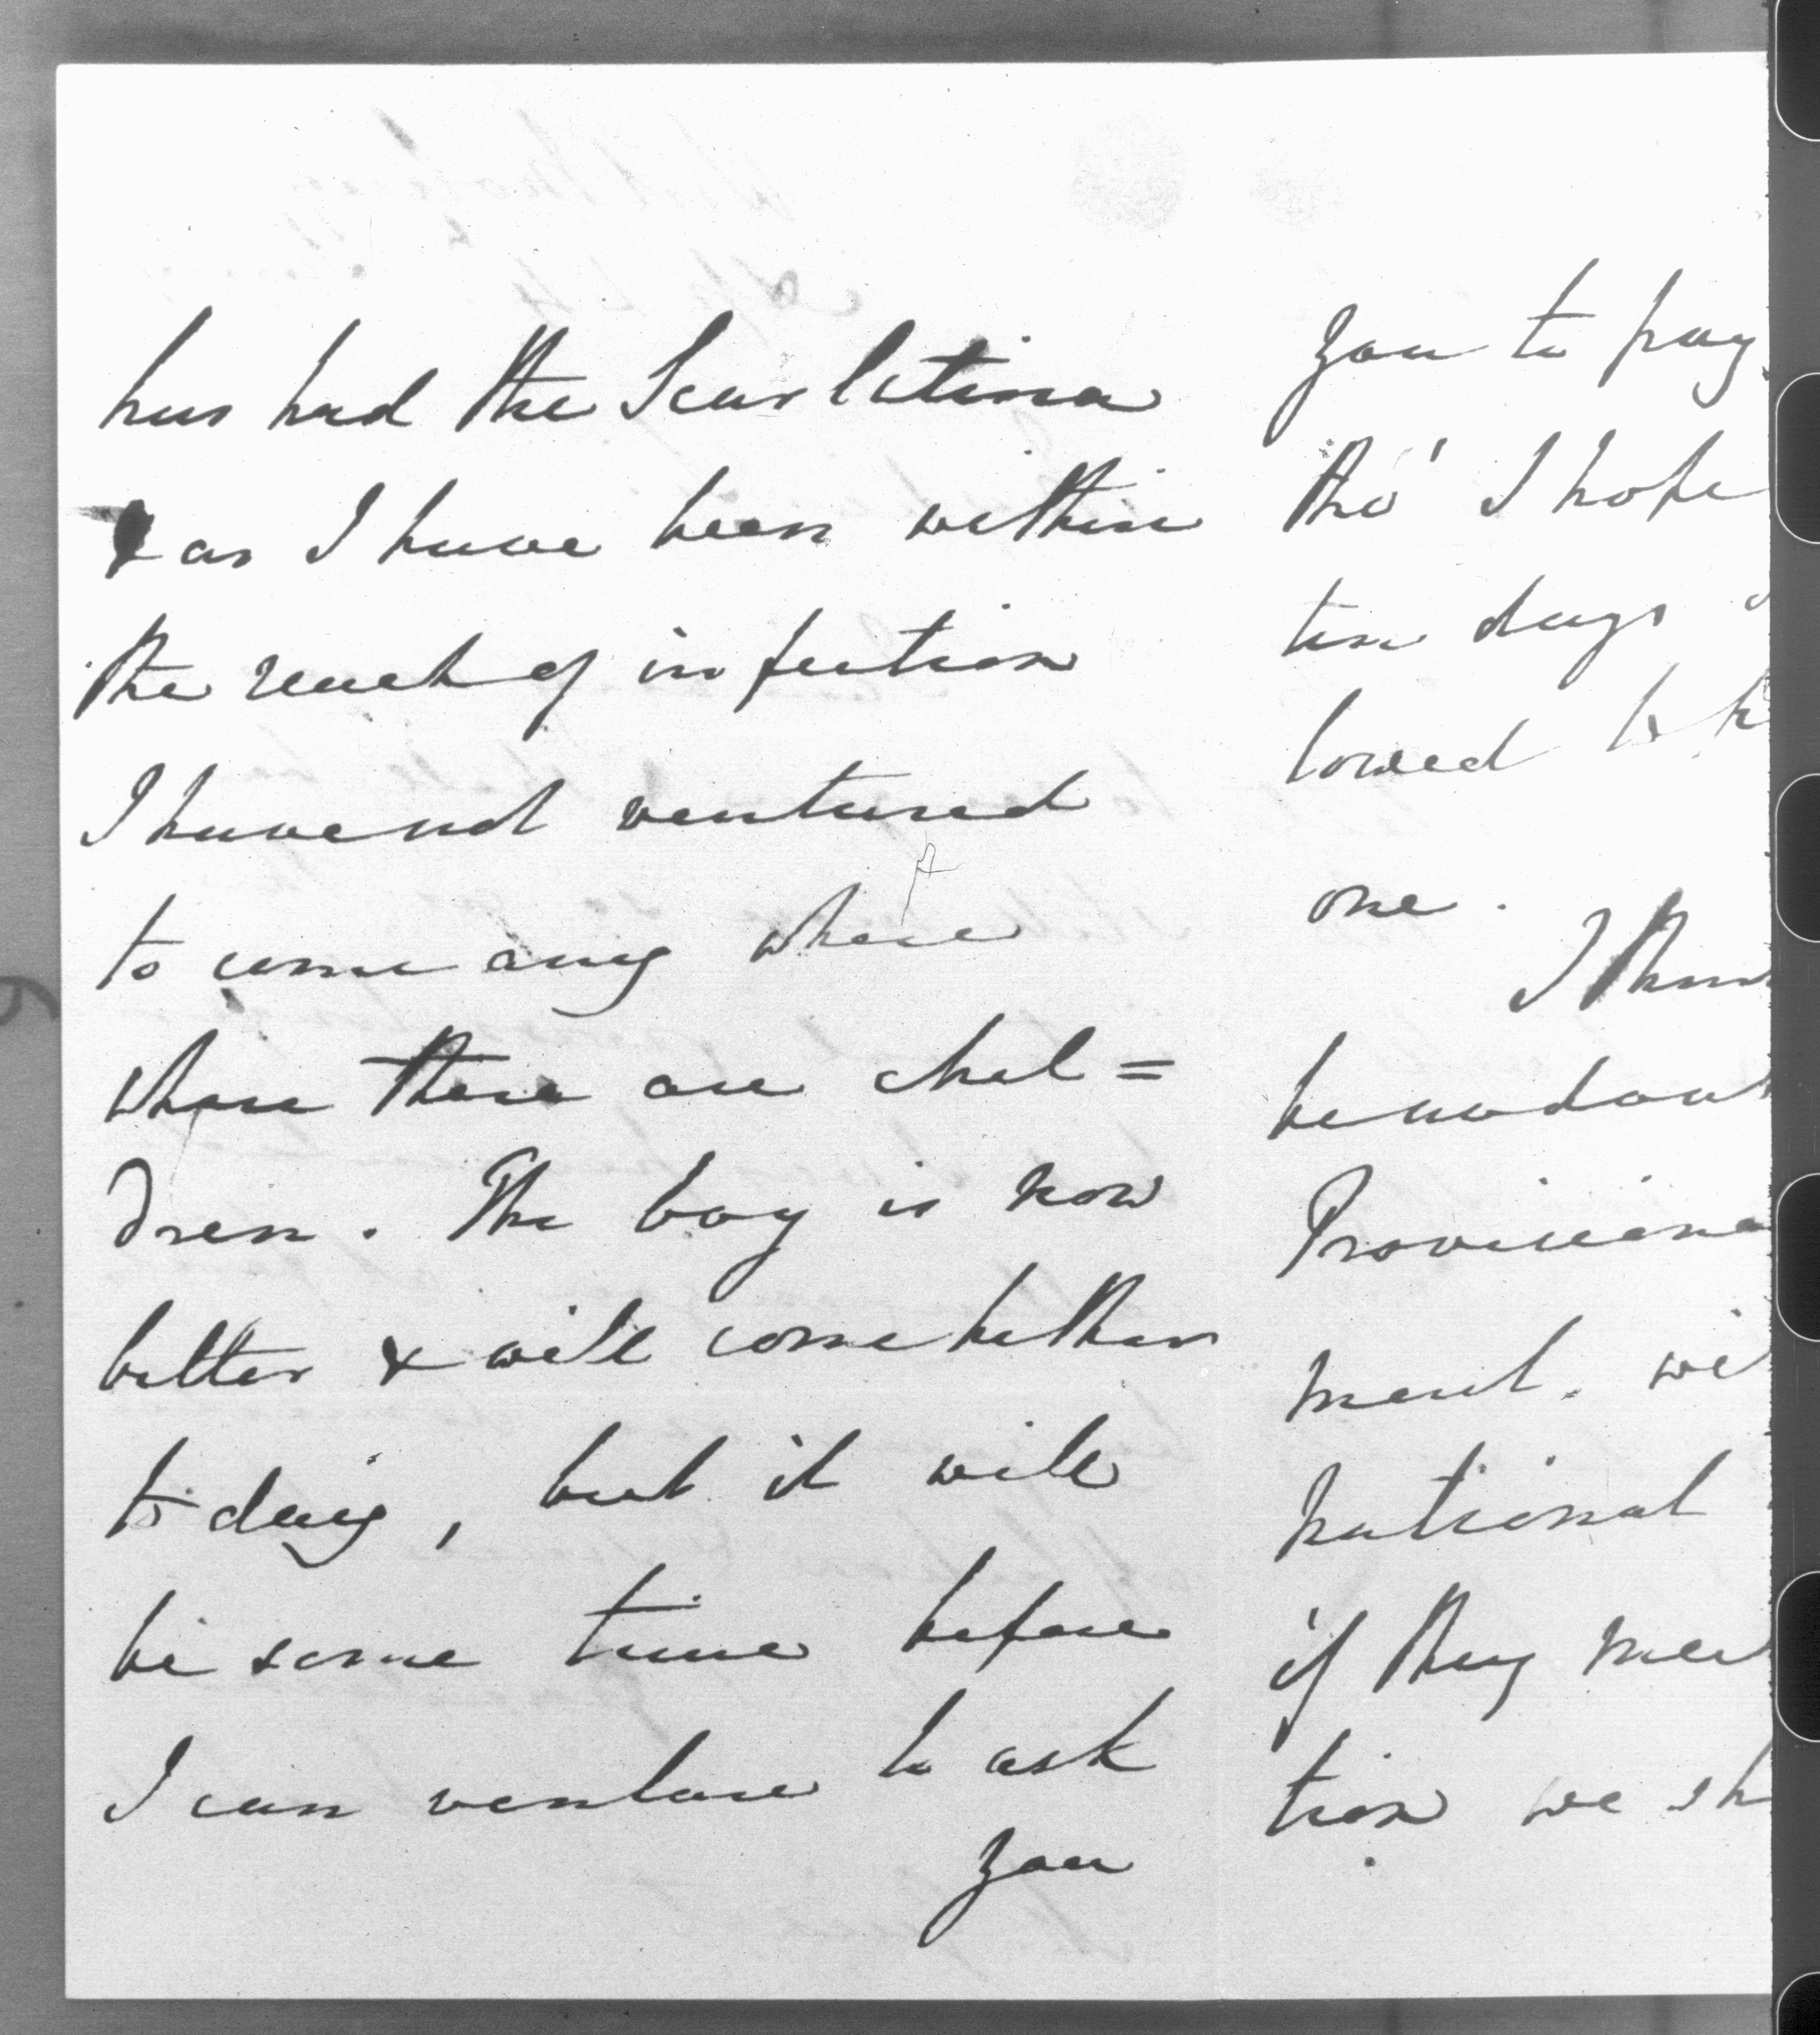 has had the Scarlatina
& as I have been within
the reach of infection
I have not ventured
to come any where
where there are chil=
dren. The boy is now
better & will come hither
to day, but it will
be some time before
I can venture to ask
you
you to pay
tho' I hope
ten days
lowed to
one.
I
be no
Provisiona
ment. wi
national
if they
tion we sh